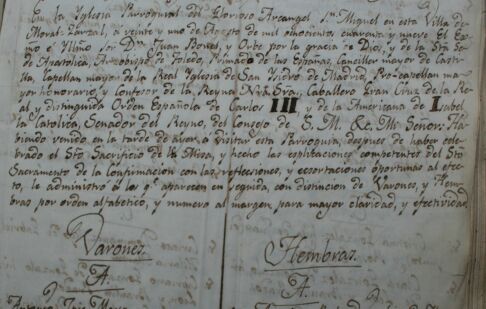 En la Yglesia Parroquial del Glorioso Arcangel Sn. Miguel en esta Villa de
Moral-Zarzal, à veinte y uno de Agosto de mil ochocientos cuarenta y nueve El Ex
mo è Yllmo Sor Dn. Juan Bonel, y Orbe por la gracia de Dios, y de la Sta Se
de Apostolica, Arzobispo de Toledo, Primado de las Españas, Canciller mayor de Casti
lla, Capellan mayor de la Real Yglesia de San Ysidro de Madrid, Pro-capellan ma
yor honorario, y Confesor de la Reyna Nra. Sra, Caballero Gran Cruz de la Re
al y distinguida Orden Española de Carlos III, y de la Americana de Isabel
la Catolica, Senador del Reyno, del Consejo de S. M. &c. Mi Señor: Ha
biendo venido en la tarde de ayer à visitar esta Parroquia, despues de haber cele
brado el Sto Sacrificio de la Misa, y hecho las esplicaciones competentes del Sto
Sacramento de la Confirmacion con las reflecciones, y ecsortaciones oportunas al efec
to, le administró à los qe aparecen en seguida, con distincion de Varones, y Hem
bras por orden alfabetico, y numero al margen, para mayor claridad, y efectividad
Varones
Hembras
A.
A.